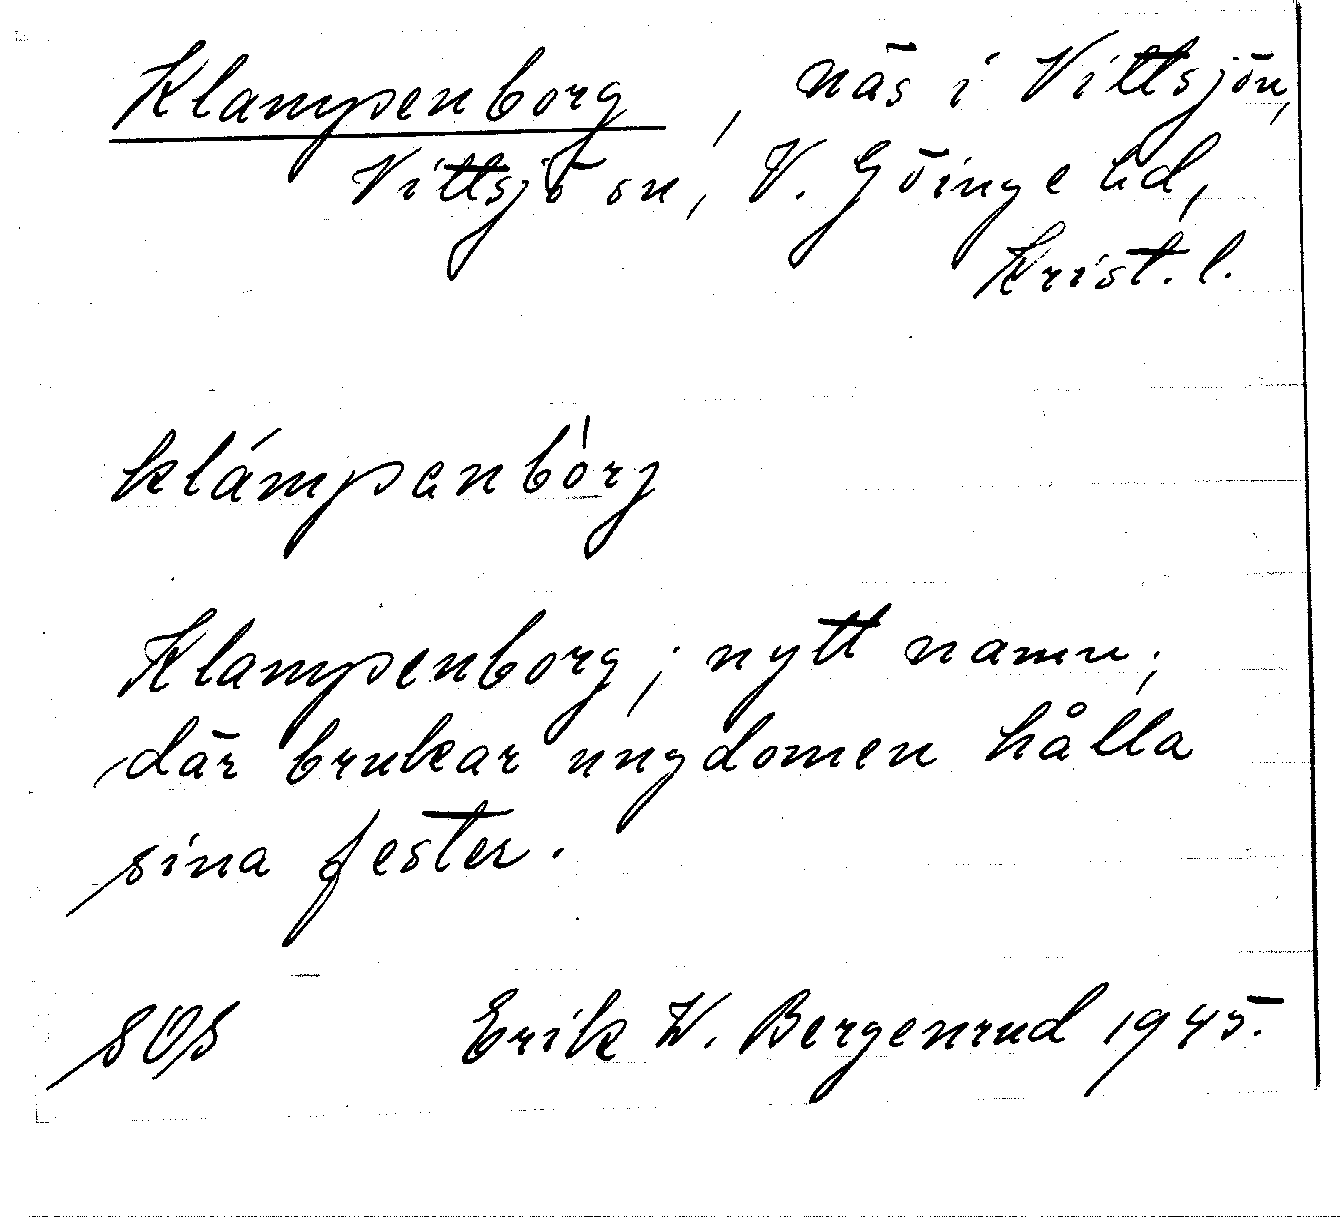 Klampenborg, näs i Vittsjön,
Vittsjö sn, V. Göinge hd,
Krist. l.
klámpənbòrj
Klampenborg; nytt namn;
där brukar ungdomen hålla
sina fester.
SOS Erik W. Bergenrud 1945.